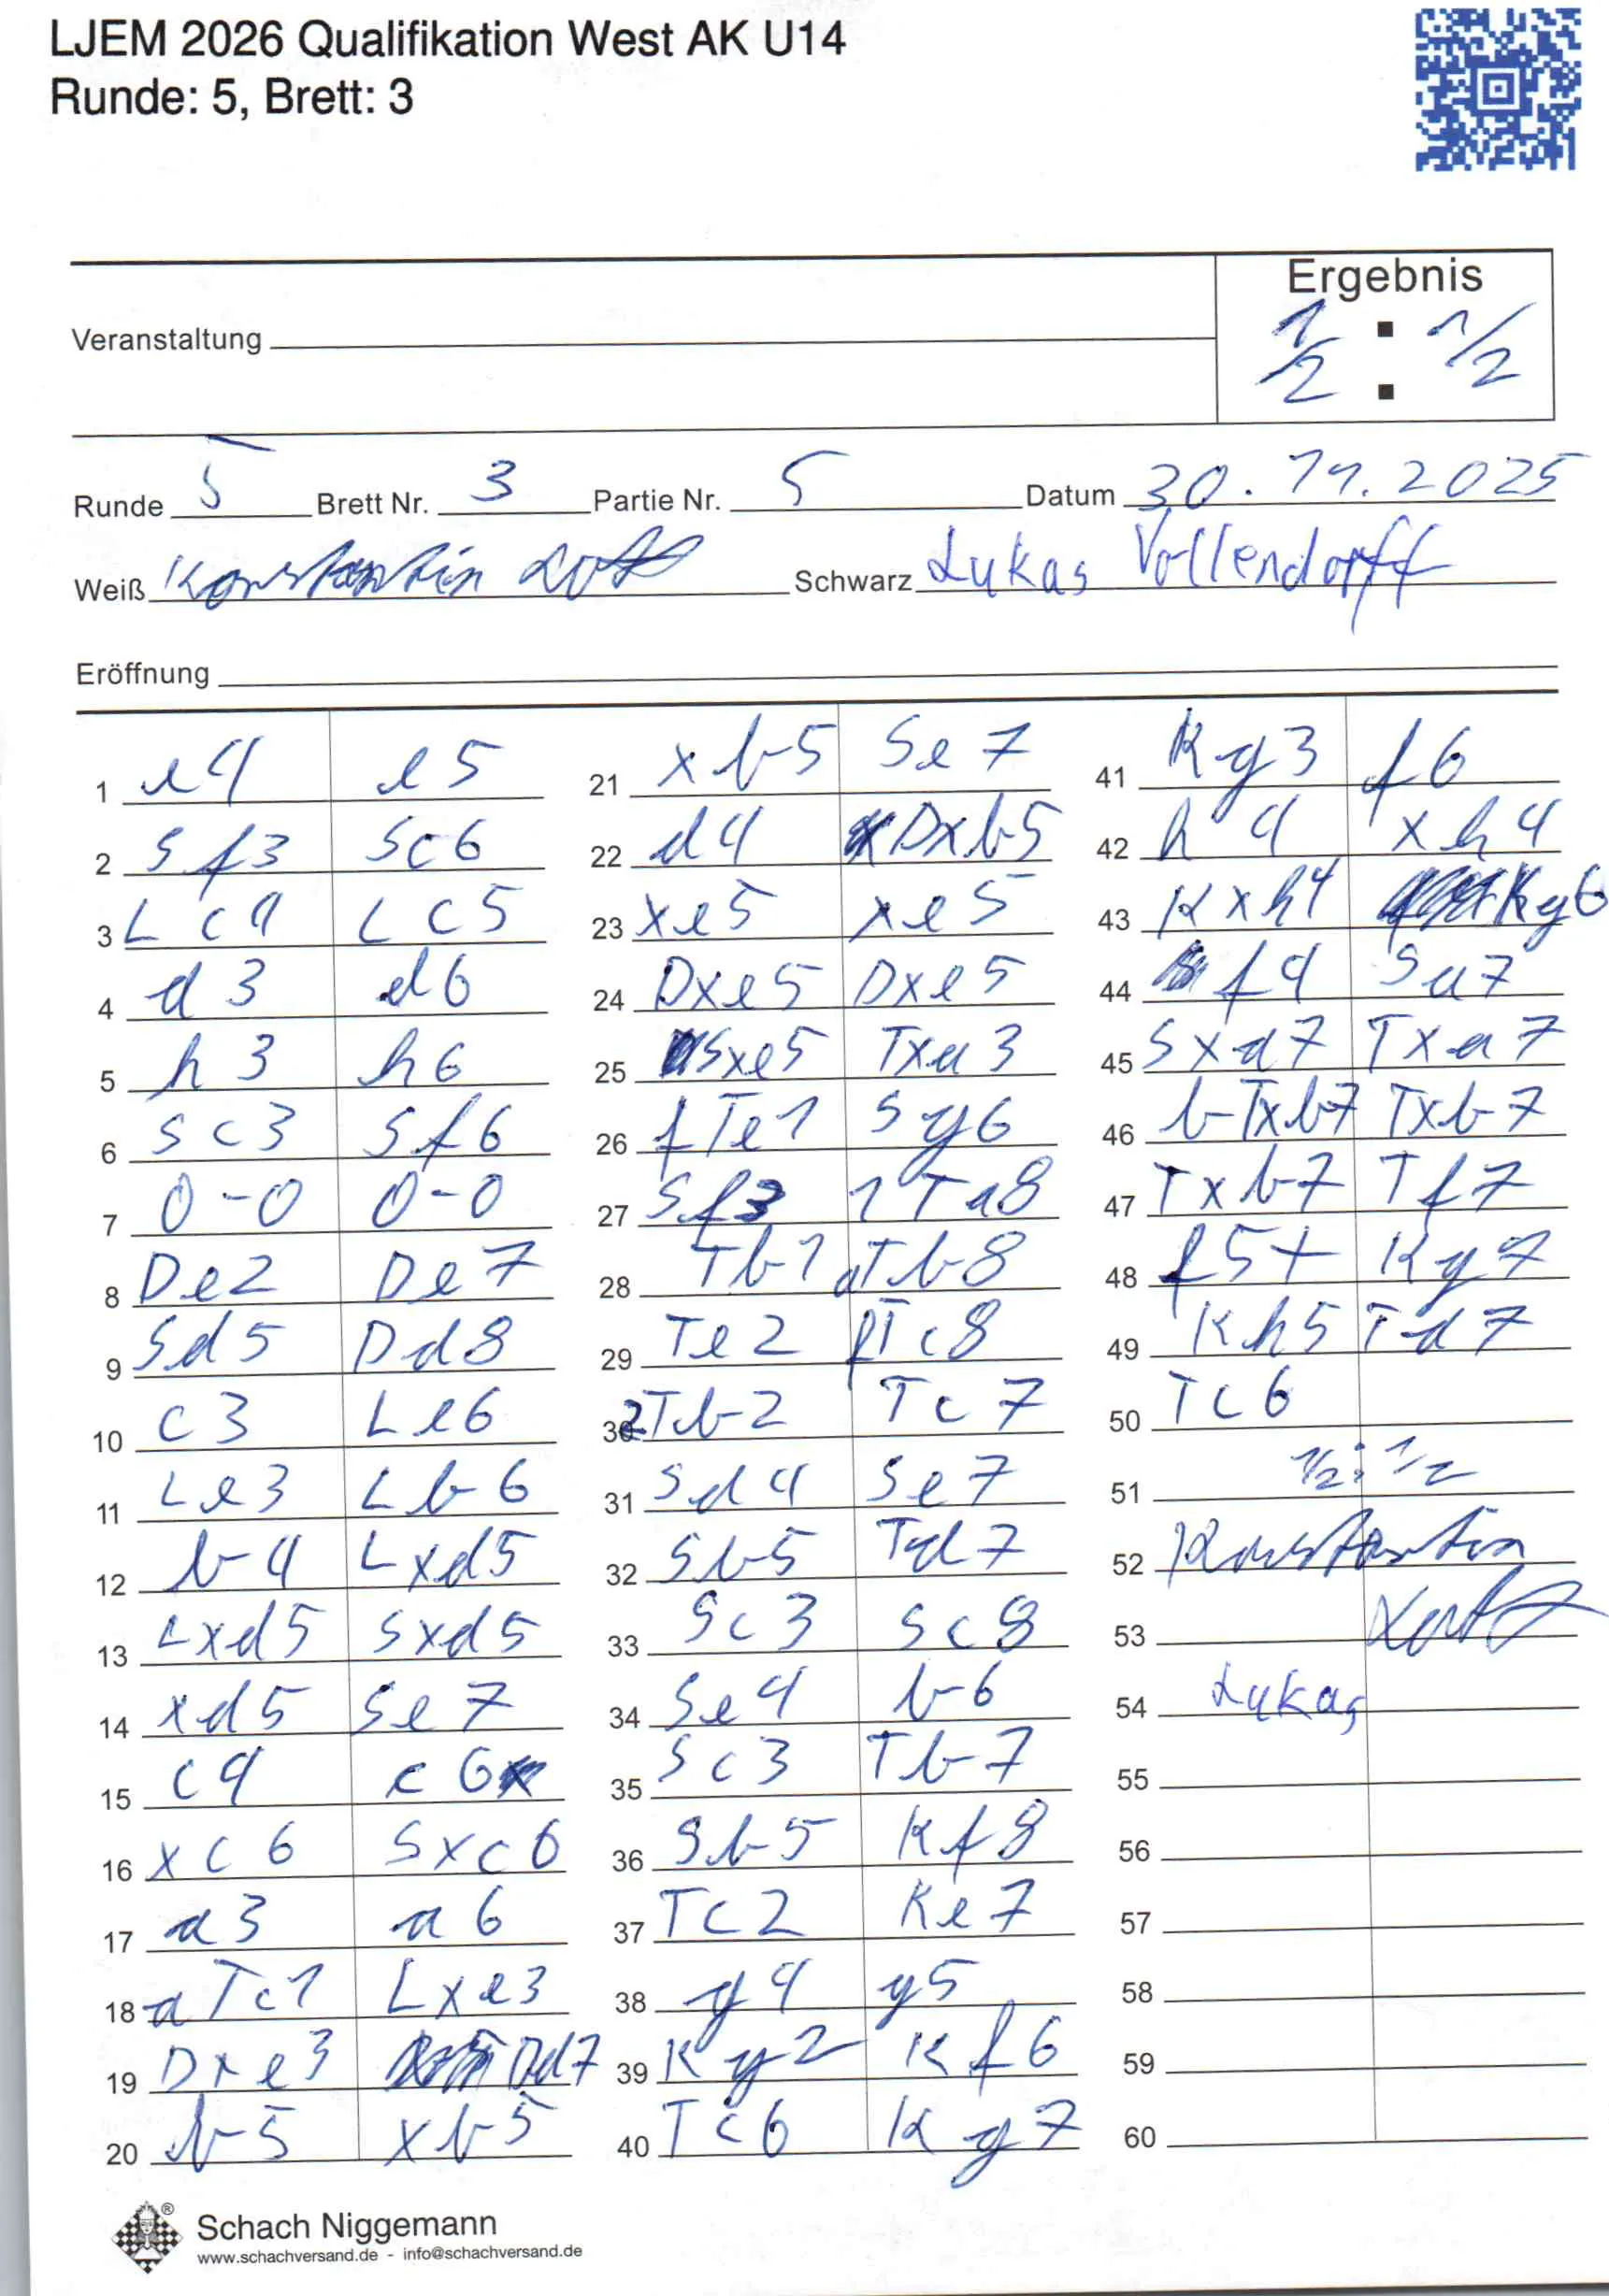 LJEM 2026 Qualifikation West AK U14
Runde: 5, Brett: 3
Ergebnis
Veranstaltung
1/2 : 1/2
Runde 5 Brett Nr. 3 Partie Nr. 5 Datum 30.11.2025
Weiß Konstantin Schwarz Lukas Vollendorff
Eröffnung
1 e4 e5
2 Sf3 Sc6
3 Lc4 Lc5
4 d3 d6
5 h3 h6
6 Sc3 Sf6
7 0-0 0-0
8 De2 De7
9 Sd5 Dd8
10 c3 Le6
11 Le3 Lb6
12 b4 Lxd5
13 Lxd5 Sxd5
14 xd5 Se7
15 c4 c6
16 xc6 Sxc6
17 a3 a6
18 aTc1 Lxe3
19 Dxe3 Dd7
20 b5 xb5
21 xb5 Se7
22 d4 Dxb5
23 xe5 xe5
24 Dxe5 Dxe5
25 Sxe5 Txa3
26 fTe1 Sg6
27 Sf3 1Ta8
28 Tb1 aTb8
29 Te2 fTc8
30 2Tb2 Tc7
31 Sd4 Se7
32 Sb5 Td7
33 Sc3 Sc8
34 Se4 b6
35 Sc3 Tb7
36 Sb5 Kf8
37 Tc2 Ke7
38 g4 g5
39 Kg2 Kf6
40 Tc6 Kg7
41 Kg3 f6
42 h4 xh4
43 Kxh4 Kg6
44 f4 Sa7
45 Sxa7 Txa7
46 bTxb7 Txb7
47 Txb7 Tf7
48 f5+ Kg7
49 Kh5 Td7
50 Tc6
51 1/2 : 1/2
52 Konstantin
53
54 Lukas
55
56
57
58
59
60
Schach Niggemann
www.schachversand.de - info@schachversand.de